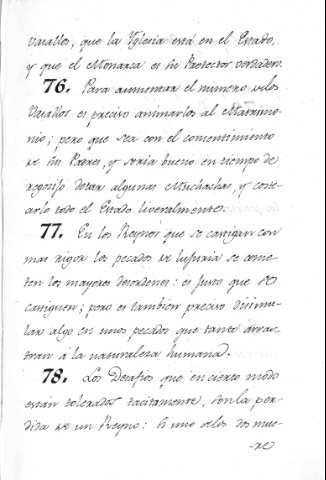 Vasallos, que la Yglesia está en el Estado,
y que el Monarca es su Protector verdadero.
76. Para aumentar el numero de los
Vasallos es preciso animarlos al Matrimo-
nio; pero que sea con el consentimiento
de sus Padres, y seria bueno en tiempo de
regosijo dotar algunas Muchachas, y coste-
arlo todo el Estado liveralmente.
77. En los Reynos que se castigan con
mas rigor los pecados de lujuria se come-
ten los mayores desordenes: es justo que se
castiguen; pero es tambien preciso disimu-
lar algo en unos pecados que tanto arras-
tran á la naturaleza humana.
78. Los Desafios que en cierto modo
están tolerados tacitamente, son la per-
dida de un Reyno: si uno de los dos mue-
-re